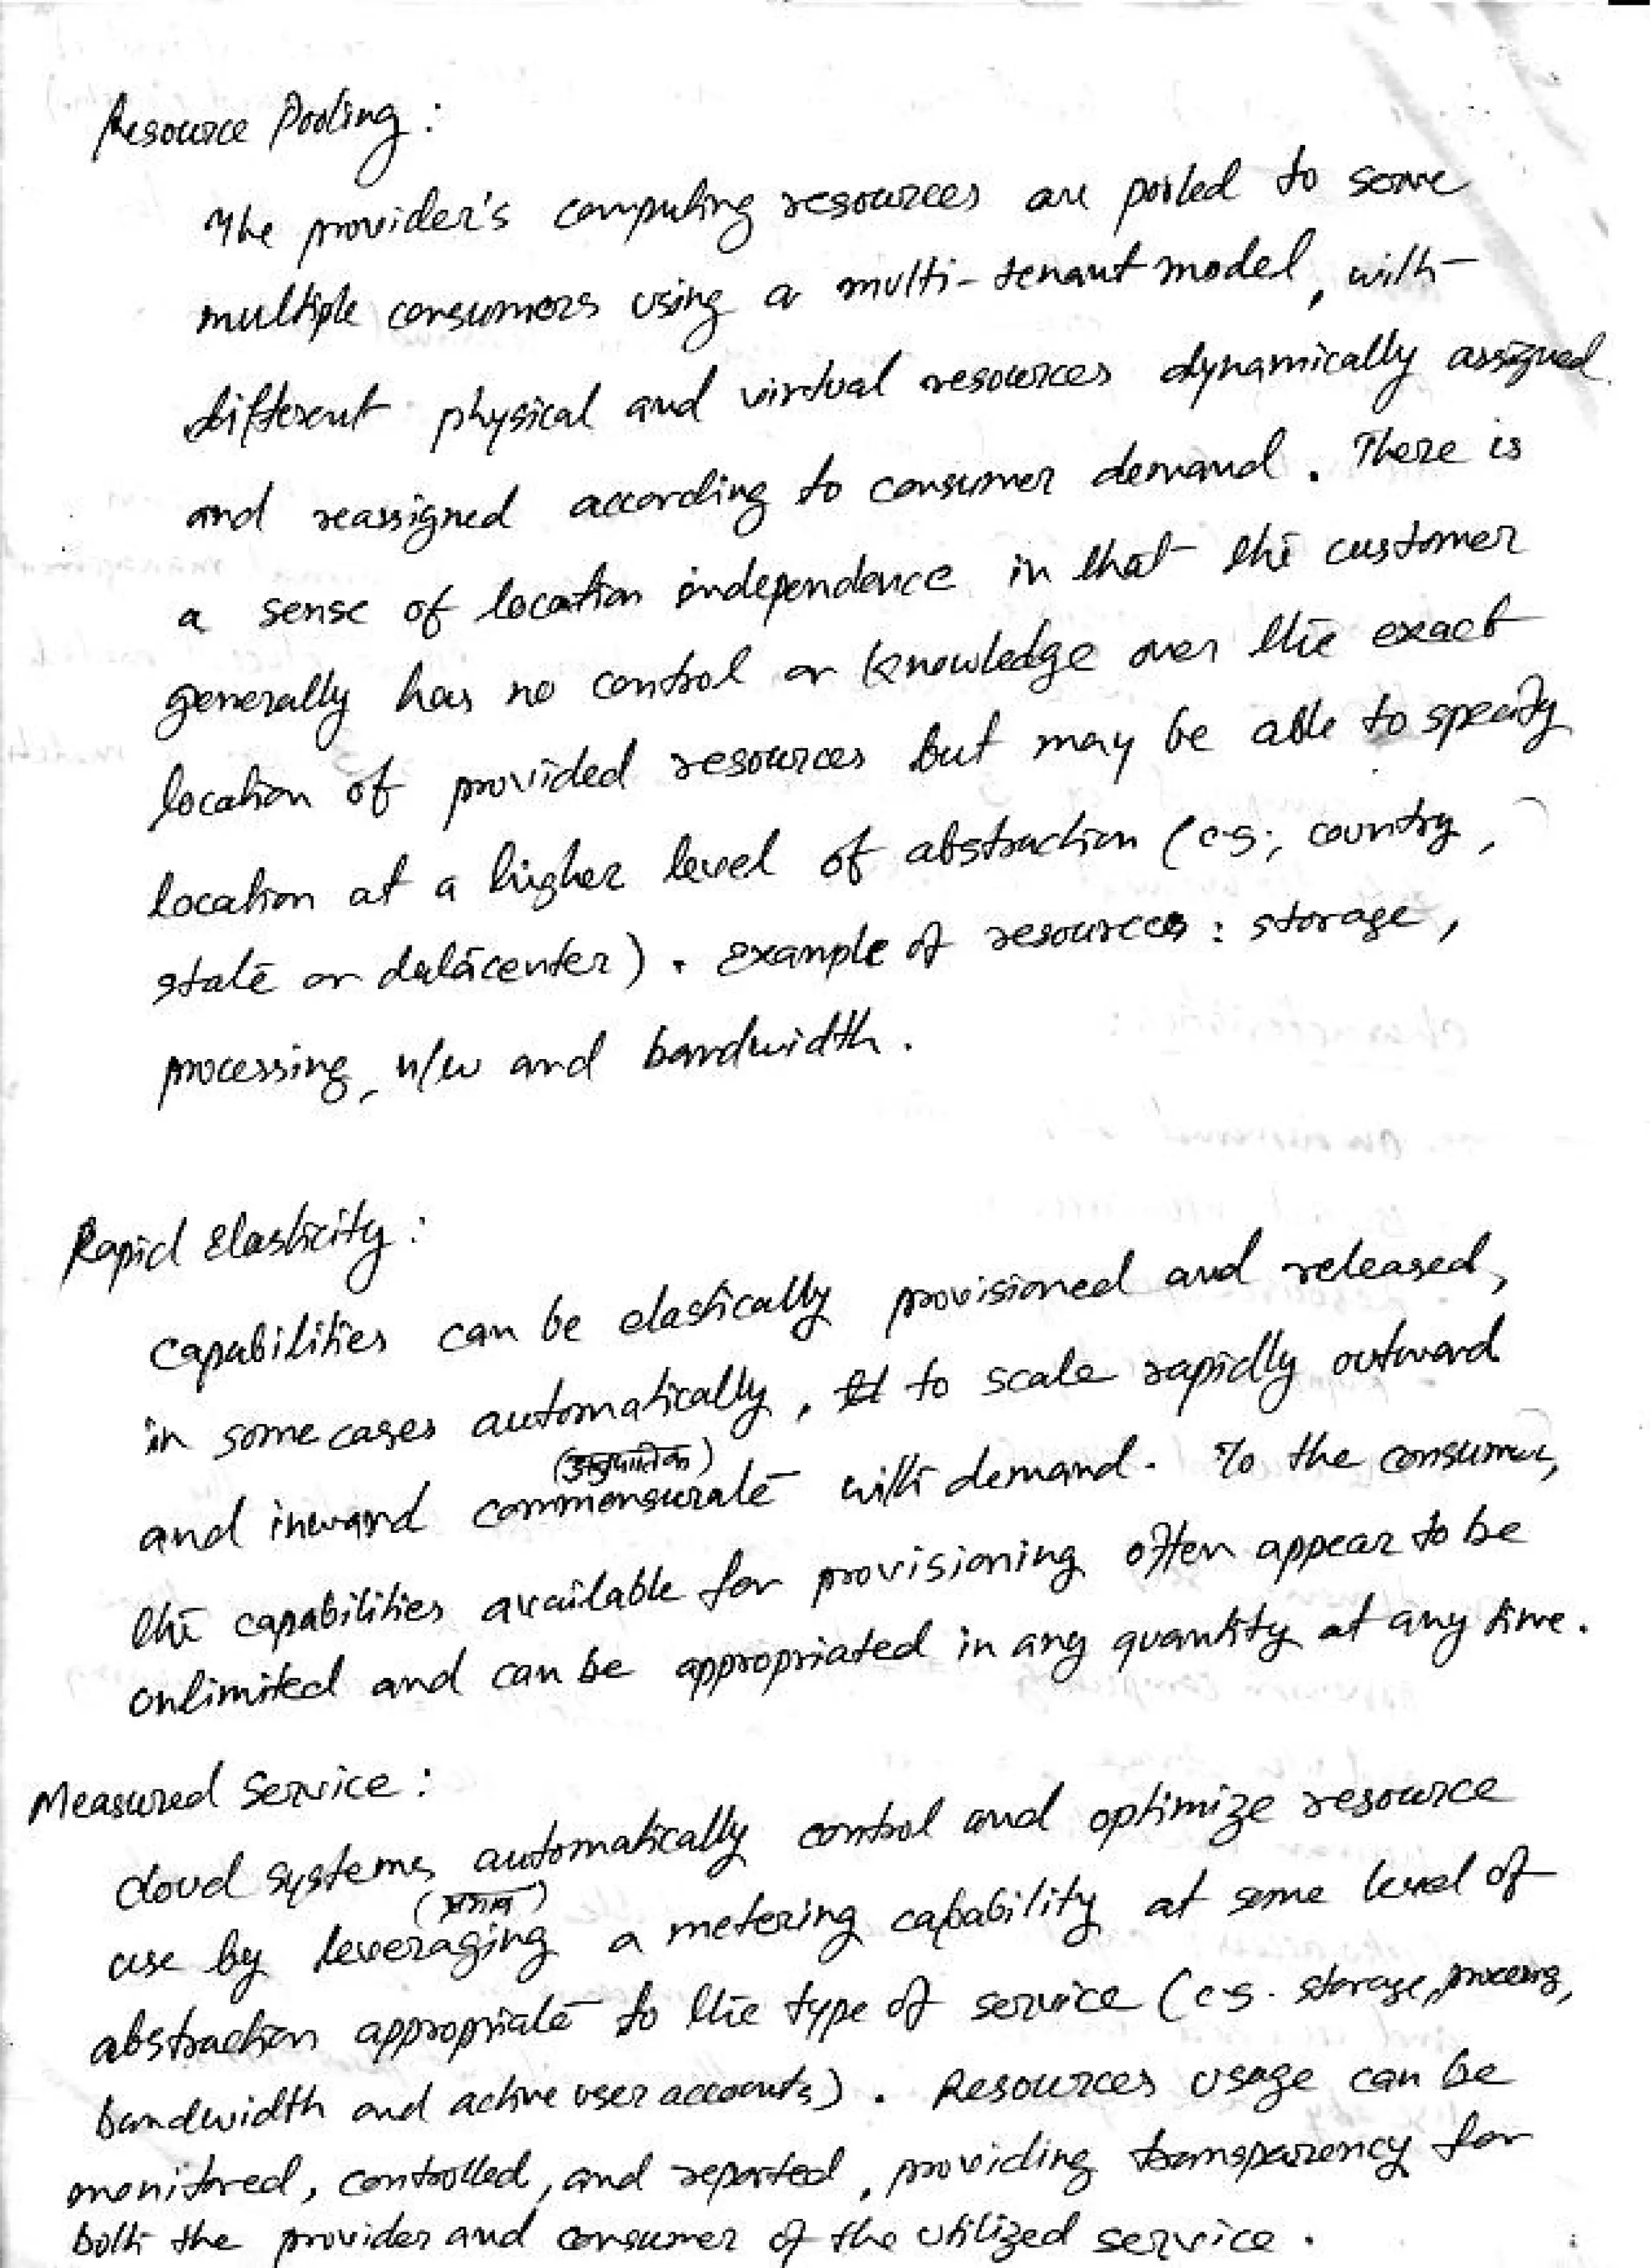 Resource Pooling :
The provider's computing resources are pooled to serve
multiple consumers using a multi-tenant model, with
different physical and virtual resources dynamically assigned
and reassigned according to consumer demand. There is
a sense of location independence in that the customer
generally has no control or knowledge over the exact
location of provided resources but may be able to specify
location at a higher level of abstraction (e.g; country,
state or datacenter). Example of resources : storage,
processing, n/w and bandwidth.
Rapid Elasticity :
Capabilities can be elastically provisioned and released,
in some cases automatically, to scale rapidly outward
and inward commensurate with demand. To the consumer,
the capabilities available for provisioning often appear to be
unlimited and can be appropriated in any quantity at any time.
Measured Service :
Cloud systems automatically control and optimize resource
use by leveraging a metering capability at some level of
abstraction appropriate to the type of service (e.g. storage, processing,
bandwidth and active user accounts). Resources usage can be
monitored, controlled, and reported, providing transparency for
both the provider and consumer of the utilized service.